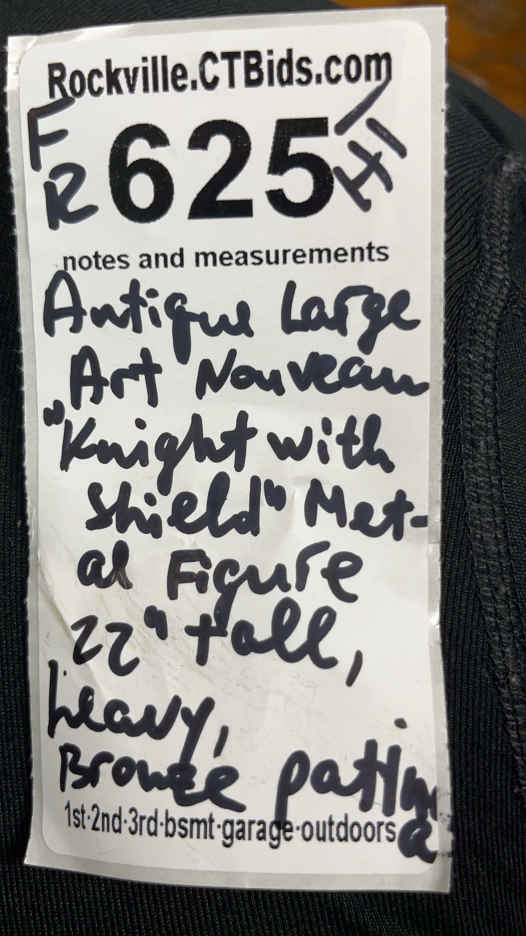 Rockville.CTBids.com
FR 625
notes and measurements
Antique Large
Art Nouveau
"Knight with
Shield" Met-
al Figure
22" tall,
heavy,
Bronze pattina
1st·2nd·3rd·bsmt·garage·outdoors